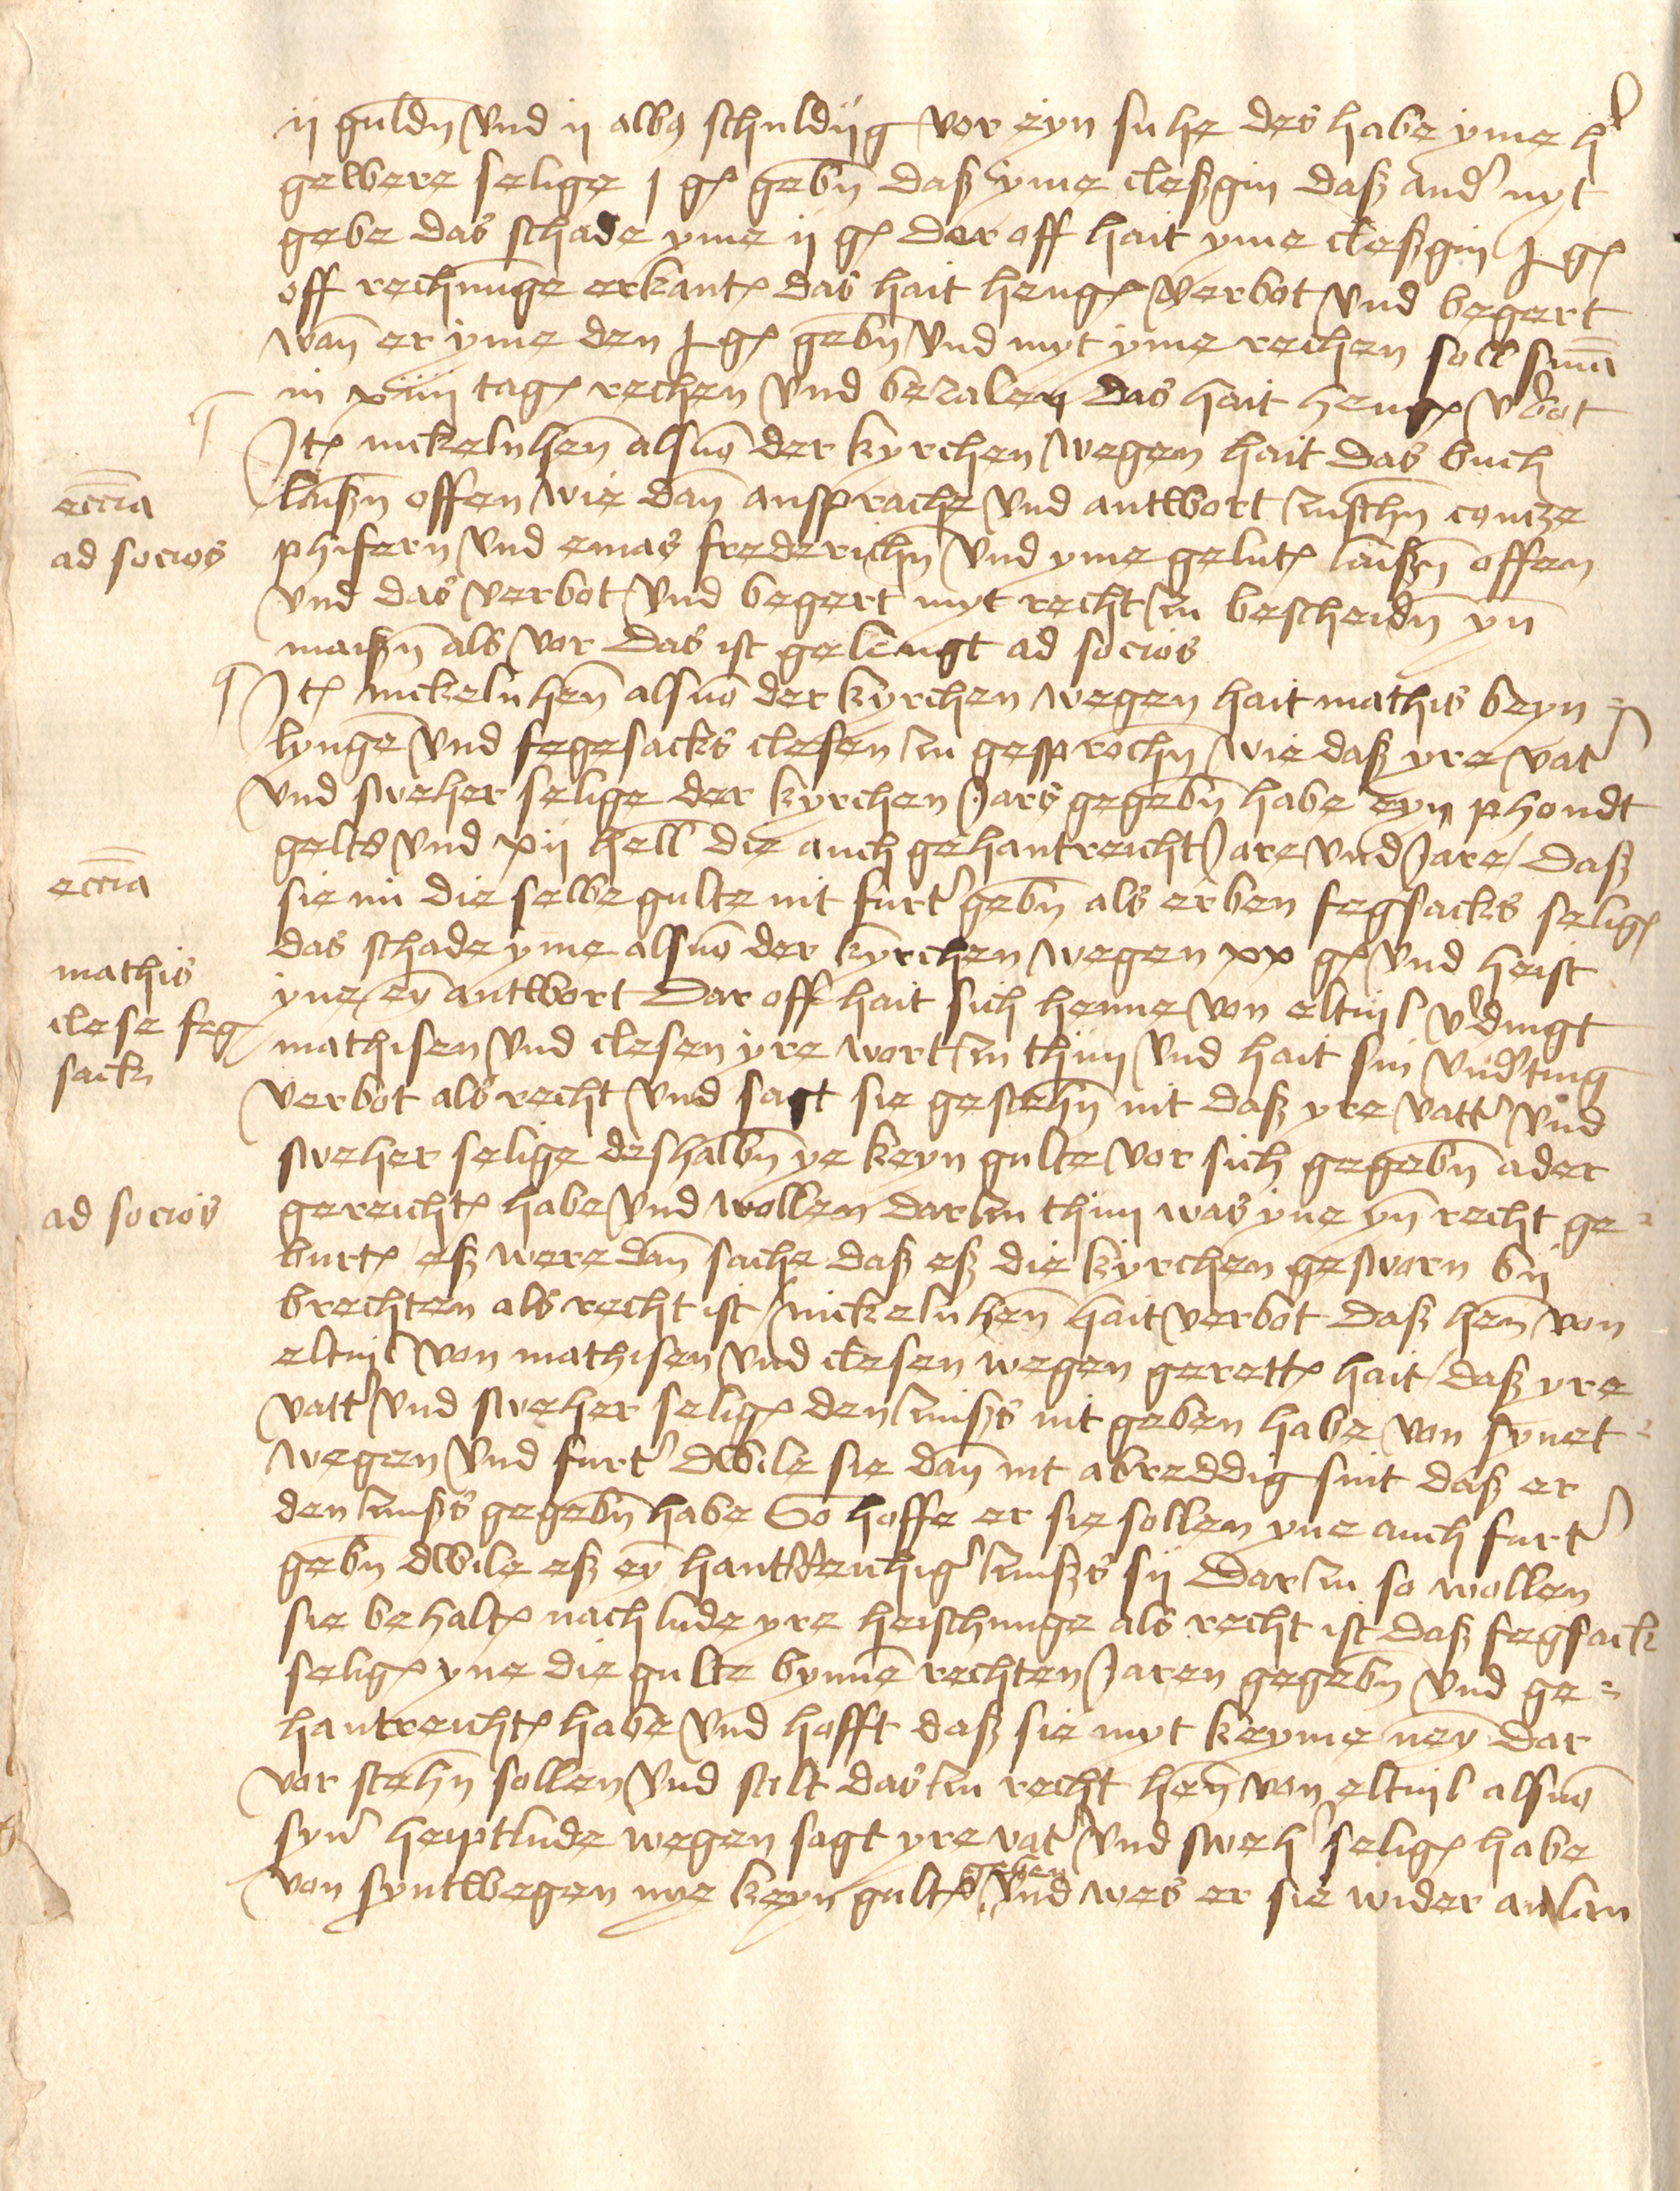 ij guldn̄ vnd ij albꝯ schuldijg vor eyn suhe des habe yme hʼ
gewere selige j gꝭ gebn̄ daß yme cleßgin daß andʼ nyt
gebe das schade yme ij gꝭ dar off hait yme cleßgin j gꝭ
off rechnūge erkantꝭ das hait hengꝭ verbot vnd begert
wan̄ er yme den j gꝭ gebn̄ vnd myt yme rechen soll
in xiiij tagꝭ rechen vnd bezalen das hait hengꝭ vʼbot
Itꝭ nickeln hen̄ als vō der kyrchen wegen hait das buch
laißn̄ offen wie dan̄ ansprache vnd antwort zuschn̄ contze
phifern vnd emas frederichn̄ vnd yme gelutꝭ laißn̄ offen
vnd das verbot vnd begert myt recht zu bescheidn̄ yn̄
maißn̄ als vor das ist gelengt ad socios
Itꝭ nickeln hen̄ als vō der kyrchen wegen hait mathis beyn=
lynge vnd fegesacks clesen zu gesprochn̄ wie daß yre vatʼ
vnd sweher selige der kyrchen Jars gegebn̄ habe eyn phondt
gelts vnd xij hell die auch gehantreicht Jare vnd Jare / daß
sie nü die selbe gulte nit furtʼ gebn̄ als erben fegsacks seligꝭ
das schade yme als vō der kyrchen wegen xx gꝭ vnd heist
yne ey̅ antwort Dar off hait sich henne von eltuil vʼdingt
mathisen vnd clesen yre wort zu thun vnd hait sin vndʼting
verbot als recht vnd sagt sie gestehn̄ nit daß yre vattʼ vnd
sweher selige deshalbn̄ ye keyn gulte vor sich gegebn̄ ader
gereichtꝭ habe vnd wollen dar zu thun was yne yn̄ recht ge=
burtꝭ eß were dan̄ sache daß eß die kyrchen gesworn bij
brechten als recht ist / nickeln hen̄ hait verbot daß hen̄ von
eltuil von mathisen vnd clesen wegen gerettꝭ hait / daß yre
vattʼ vnd sweher seligꝭ den zinßs nit geben habe von synet=
wegen vnd furtʼ dwile sie dan̄ nit abreddig sint daß er
den zinßs gegebn̄ habe So hoffe er sie sollen yne auch furtʼ
gebn̄ dwile eß ey̅ hantreichigʼ zinßs sij Dar zu so wollen
sie behaltꝭ nach lude yre heischunge als recht ist daß fegsack
seligꝭ yne die gulte bynnē rechten Jaren gegebn̄ vnd ge=
hantreichtꝭ habe vnd hofft daß sie myt keyme ney̅ dar
vor stehn̄ sollen vnd stilt das zu recht hen̄ von eltuil als vō
synʼ heiptlude wegen sagt yre vatʼ vnd swehʼ seligꝭ habe
geben
von syntwegen nye keyn gultꝭ vnd wes er sie wider an lan
eccīa
ad socios
eccīa
mathis
clese feg
sack
ad socios